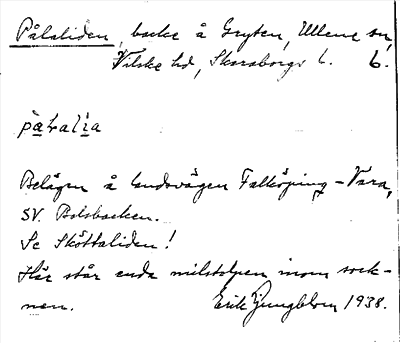 Pålaliden, backe å Gryten, Ullene sn,
Vilske hd, Skaraborgs l. 6.
Belägen å landsvägen Falköping – Vara,
SV. Bolsbacken.
Se Sköttaliden!
Här står enda milstolpen inom sock-
nen. Erik Ljungblom 1938.